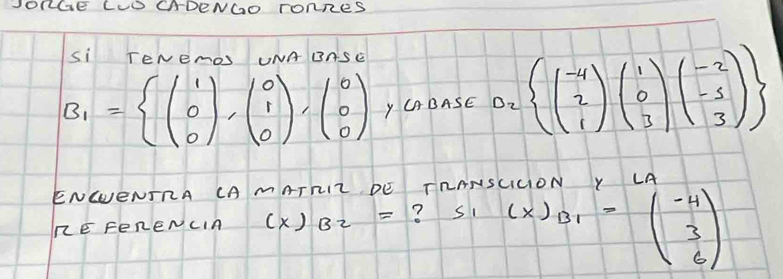 JORGE LUS CADENGO TORRES
Si TENEMOS UNA BASE
B1 = { (1 0 0), (0 1 0), (0 0 0) y LA BASE B2 { (-4 2 1) (1 0 3) (-2 -5 3) }
ENCUENTRA LA MATRIZ DE TRANSCICION Y LA
REFERENCIA (X) B2 = ? Si (X) B1 = (-4 3 6)